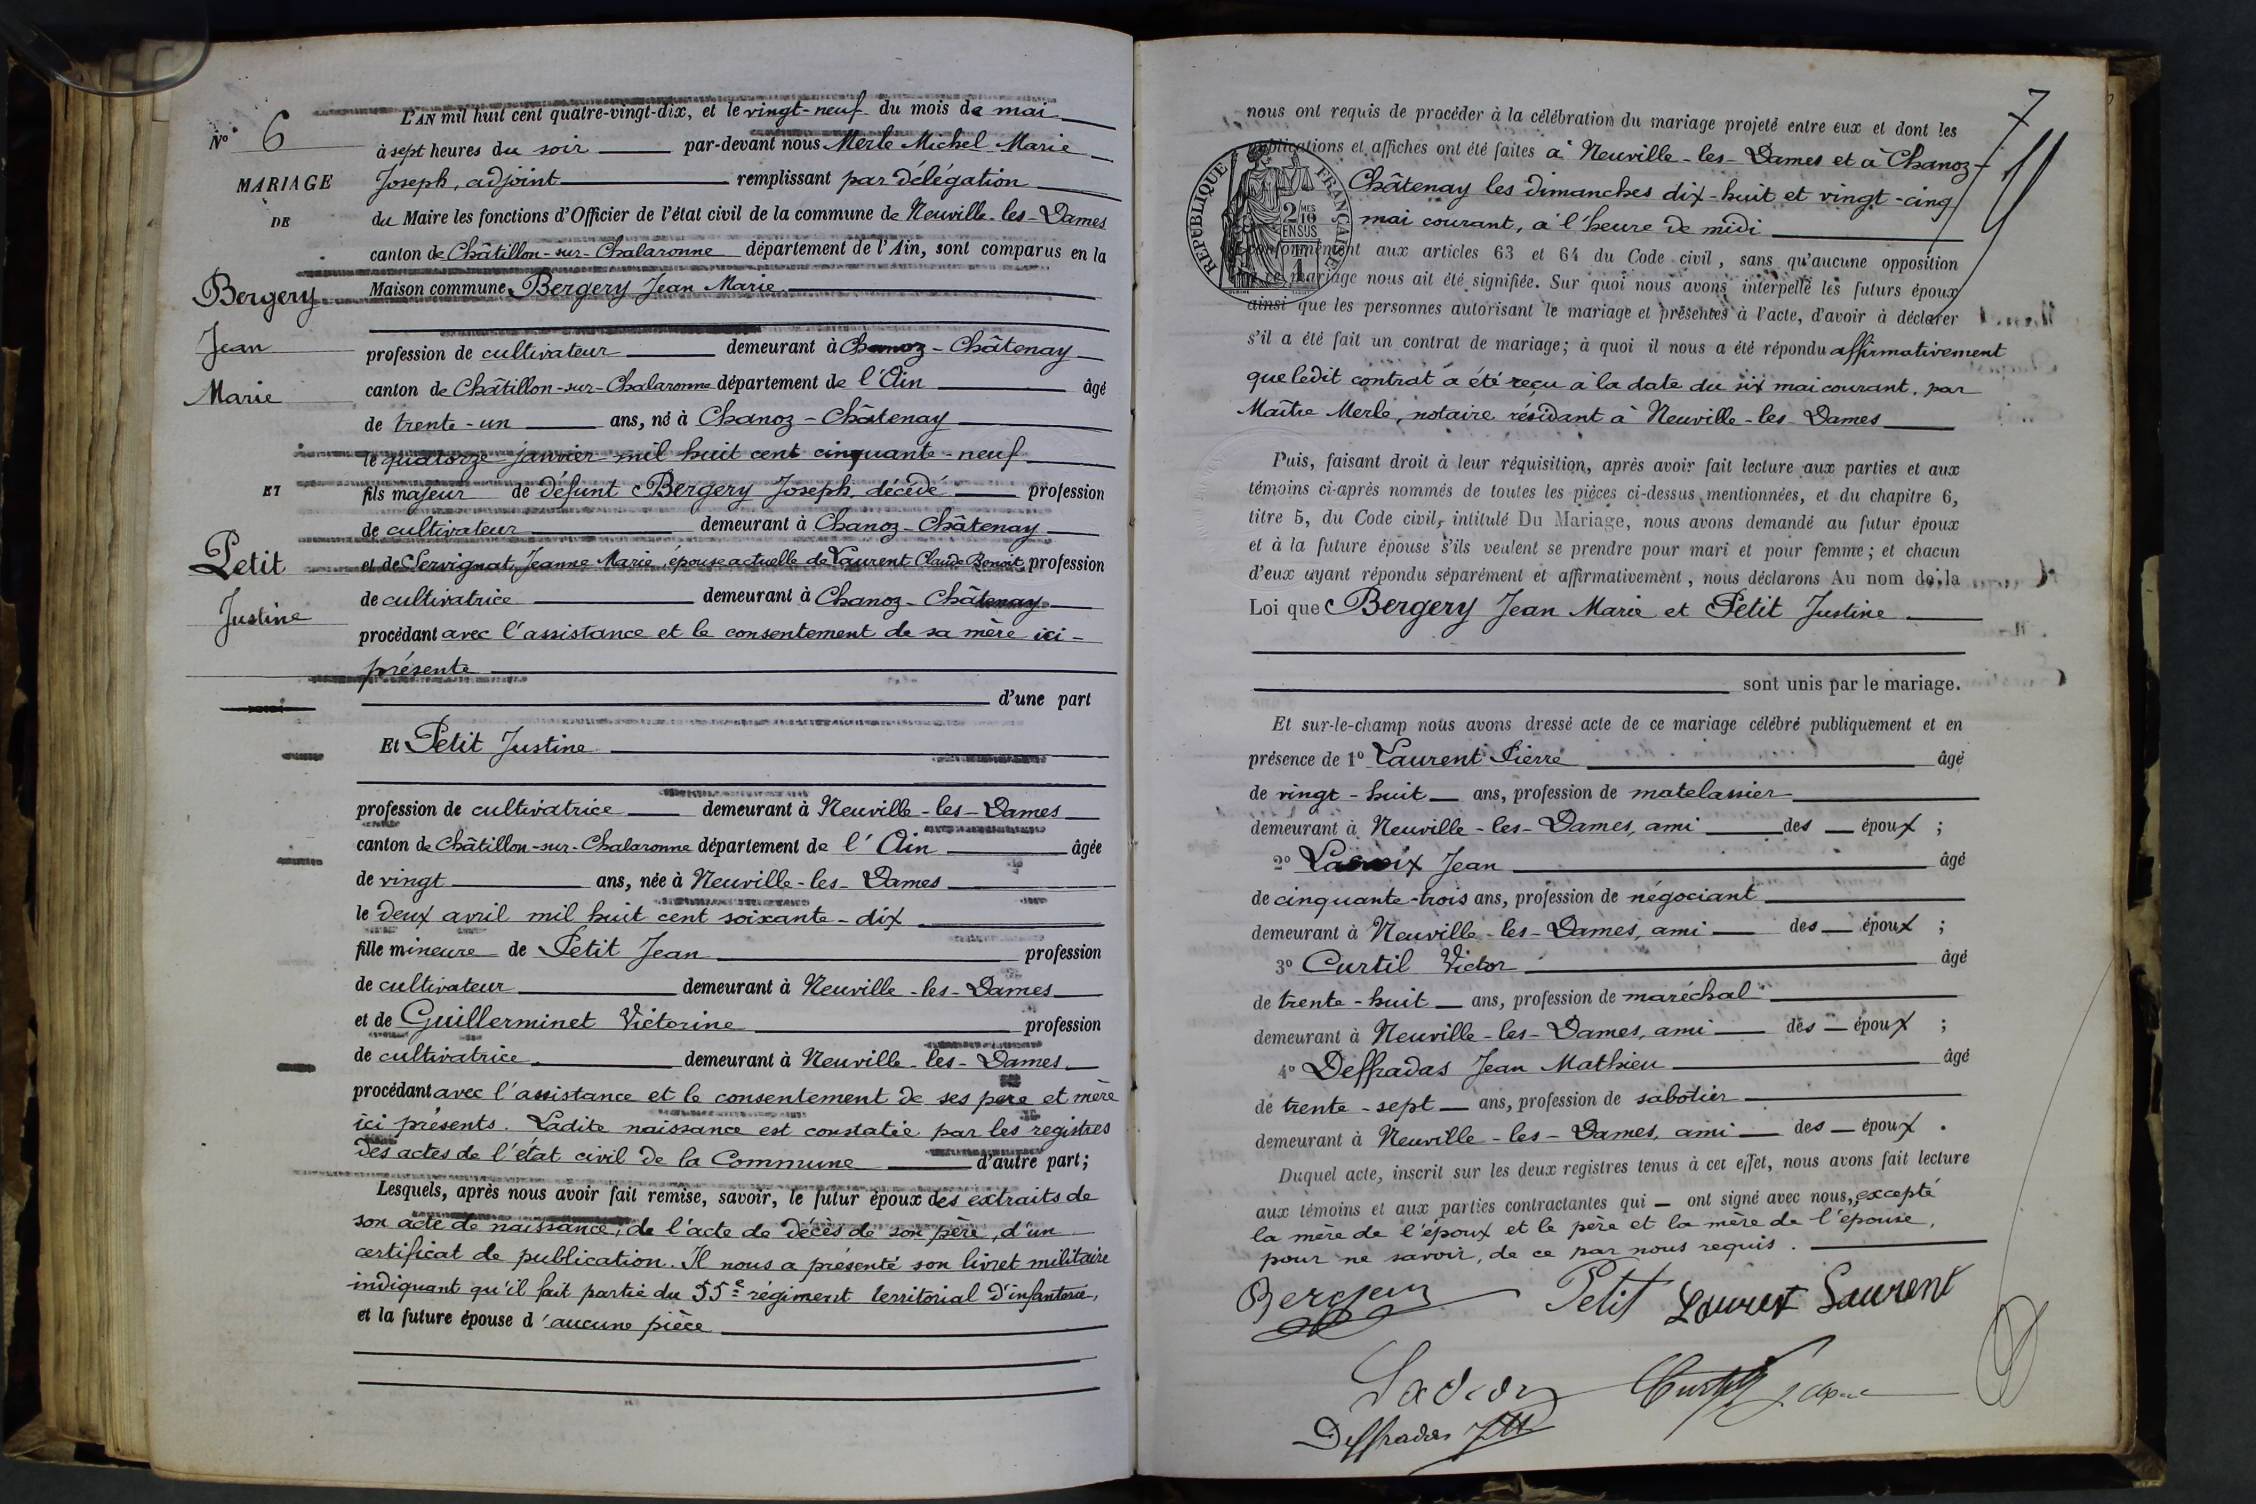 N° 6
MARIAGE
DE
Bergery
Jean
Marie
ET
Petit
Justine
L'AN mil huit cent quatre-vingt-dix, et le vingt-neuf du mois de mai
à sept heures du soir par-devant nous Merle Michel Marie
Joseph, adjoint remplissant par délégation
du Maire les fonctions d'Officier de l'état civil de la commune de Neuville-les-Dames
canton de Châtillon-sur-Chalaronne département de l'Ain, sont comparus en la
Maison commune Bergery Jean Marie
profession de cultivateur demeurant à Chanoz-Châtenay
canton de Châtillon-sur-Chalaronne département de l'Ain âgé
de trente-un ans, né à Chanoz-Châtenay
le quatorze janvier mil huit cent cinquante-neuf
fils majeur de défunt Bergery Joseph décédé profession
de cultivateur demeurant à Chanoz-Châtenay
et de Servignat Jeanne Marie, épouse actuelle de Laurent Claude Benoit profession
de cultivatrice demeurant à Chanoz-Châtenay
procédant avec l'assistance et le consentement de sa mère ici-
présente
d'une part
Et Petit Justine
profession de cultivatrice demeurant à Neuville-les-Dames
canton de Châtillon-sur-Chalaronne département de l'Ain âgée
de vingt ans, née à Neuville-les-Dames
le deux avril mil huit cent soixante-dix
fille mineure de Petit Jean profession
de cultivateur demeurant à Neuville-les-Dames
et de Guillerminet Victorine profession
de cultivatrice demeurant à Neuville-les-Dames
procédant avec l'assistance et le consentement de ses père et mère
ici présents. Ladite naissance est constatée par les registres
des actes de l'état civil de la Commune d'autre part;
Lesquels, après nous avoir fait remise, savoir, le futur époux des extraits de
son acte de naissance, de l'acte de décès de son père, d'un
certificat de publication. Il nous a présenté son livret militaire
indiquant qu'il fait partie du 55e régiment territorial d'infanterie,
et la future épouse d'aucune pièce
7
nous ont requis de procéder à la célébration du mariage projeté entre eux et dont les
publications et affiches ont été faites à Neuville-les-Dames et à Chanoz-
Châtenay les dimanches dix-huit et vingt-cinq
mai courant, à l'heure de midi
RÉPUBLIQUE FRANÇAISE
2/10 EN SUS
conformément aux articles 63 et 64 du Code civil, sans qu'aucune opposition
à ce mariage nous ait été signifiée. Sur quoi nous avons interpellé les futurs époux
ainsi que les personnes autorisant le mariage et présentes à l'acte, d'avoir à déclarer
s'il a été fait un contrat de mariage; à quoi il nous a été répondu affirmativement
que ledit contrat a été reçu à la date du six mai courant, par
Maître Merle, notaire résidant à Neuville-les-Dames
Puis, faisant droit à leur réquisition, après avoir fait lecture aux parties et aux
témoins ci-après nommés de toutes les pièces ci-dessus mentionnées, et du chapitre 6,
titre 5, du Code civil, intitulé Du Mariage, nous avons demandé au futur époux
et à la future épouse s'ils veulent se prendre pour mari et pour femme; et chacun
d'eux ayant répondu séparément et affirmativement, nous déclarons Au nom de la
Loi que Bergery Jean Marie et Petit Justine
sont unis par le mariage.
Et sur-le-champ nous avons dressé acte de ce mariage célébré publiquement et en
présence de 1° Laurent Pierre âgé
de vingt-huit ans, profession de matelassier
demeurant à Neuville-les-Dames, ami des époux ;
2° Lacroix Jean âgé
de cinquante-trois ans, profession de négociant
demeurant à Neuville-les-Dames, ami des époux ;
3° Curtil Victor âgé
de trente-huit ans, profession de maréchal
demeurant à Neuville-les-Dames, ami des époux ;
4° Deffradas Jean Mathieu âgé
de trente-sept ans, profession de sabotier
demeurant à Neuville-les-Dames, ami des époux.
Duquel acte, inscrit sur les deux registres tenus à cet effet, nous avons fait lecture
aux témoins et aux parties contractantes qui ont signé avec nous, excepté
la mère de l'époux et le père et la mère de l'épouse,
pour ne savoir, de ce par nous requis.
Bergery Petit Laurent Laurent
Curtil
Deffradas